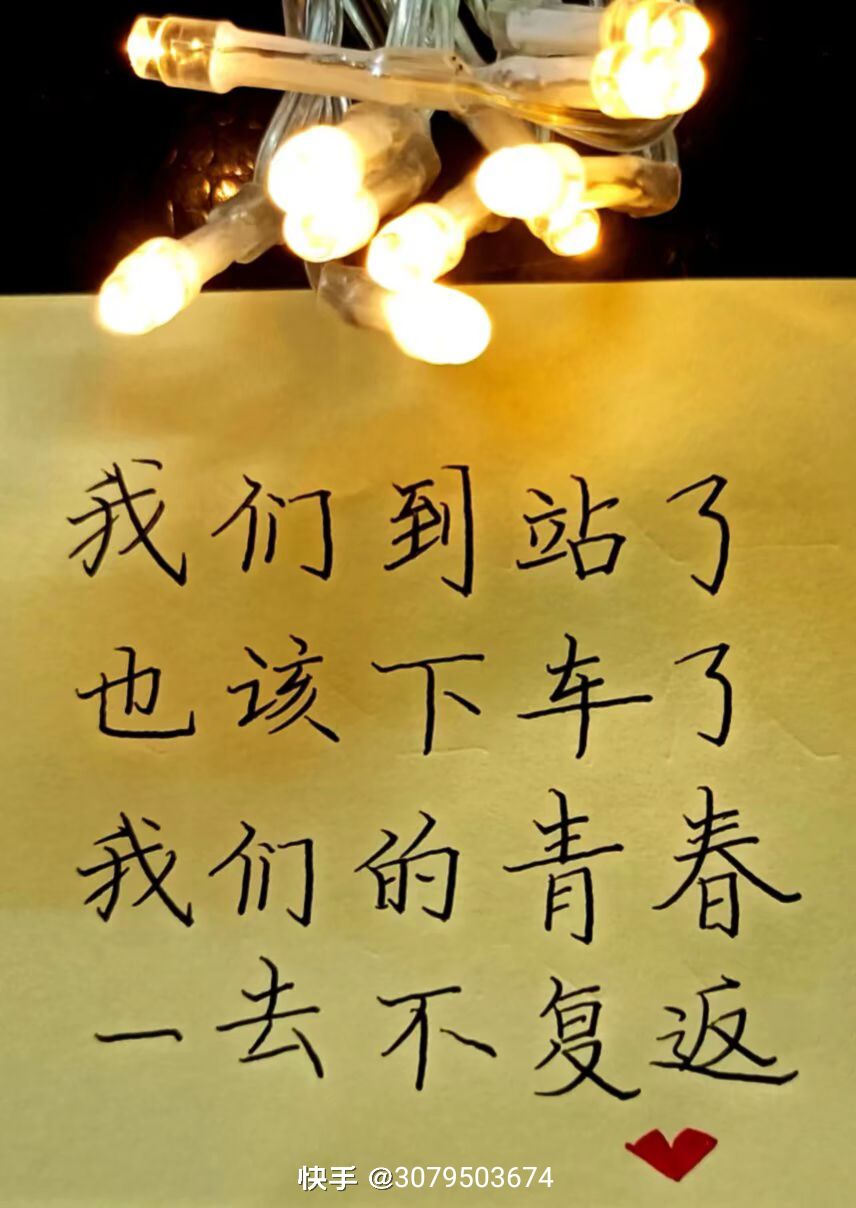 我们到站了
也该下车了
我们的青春
一去不复返
快手 @3079503674